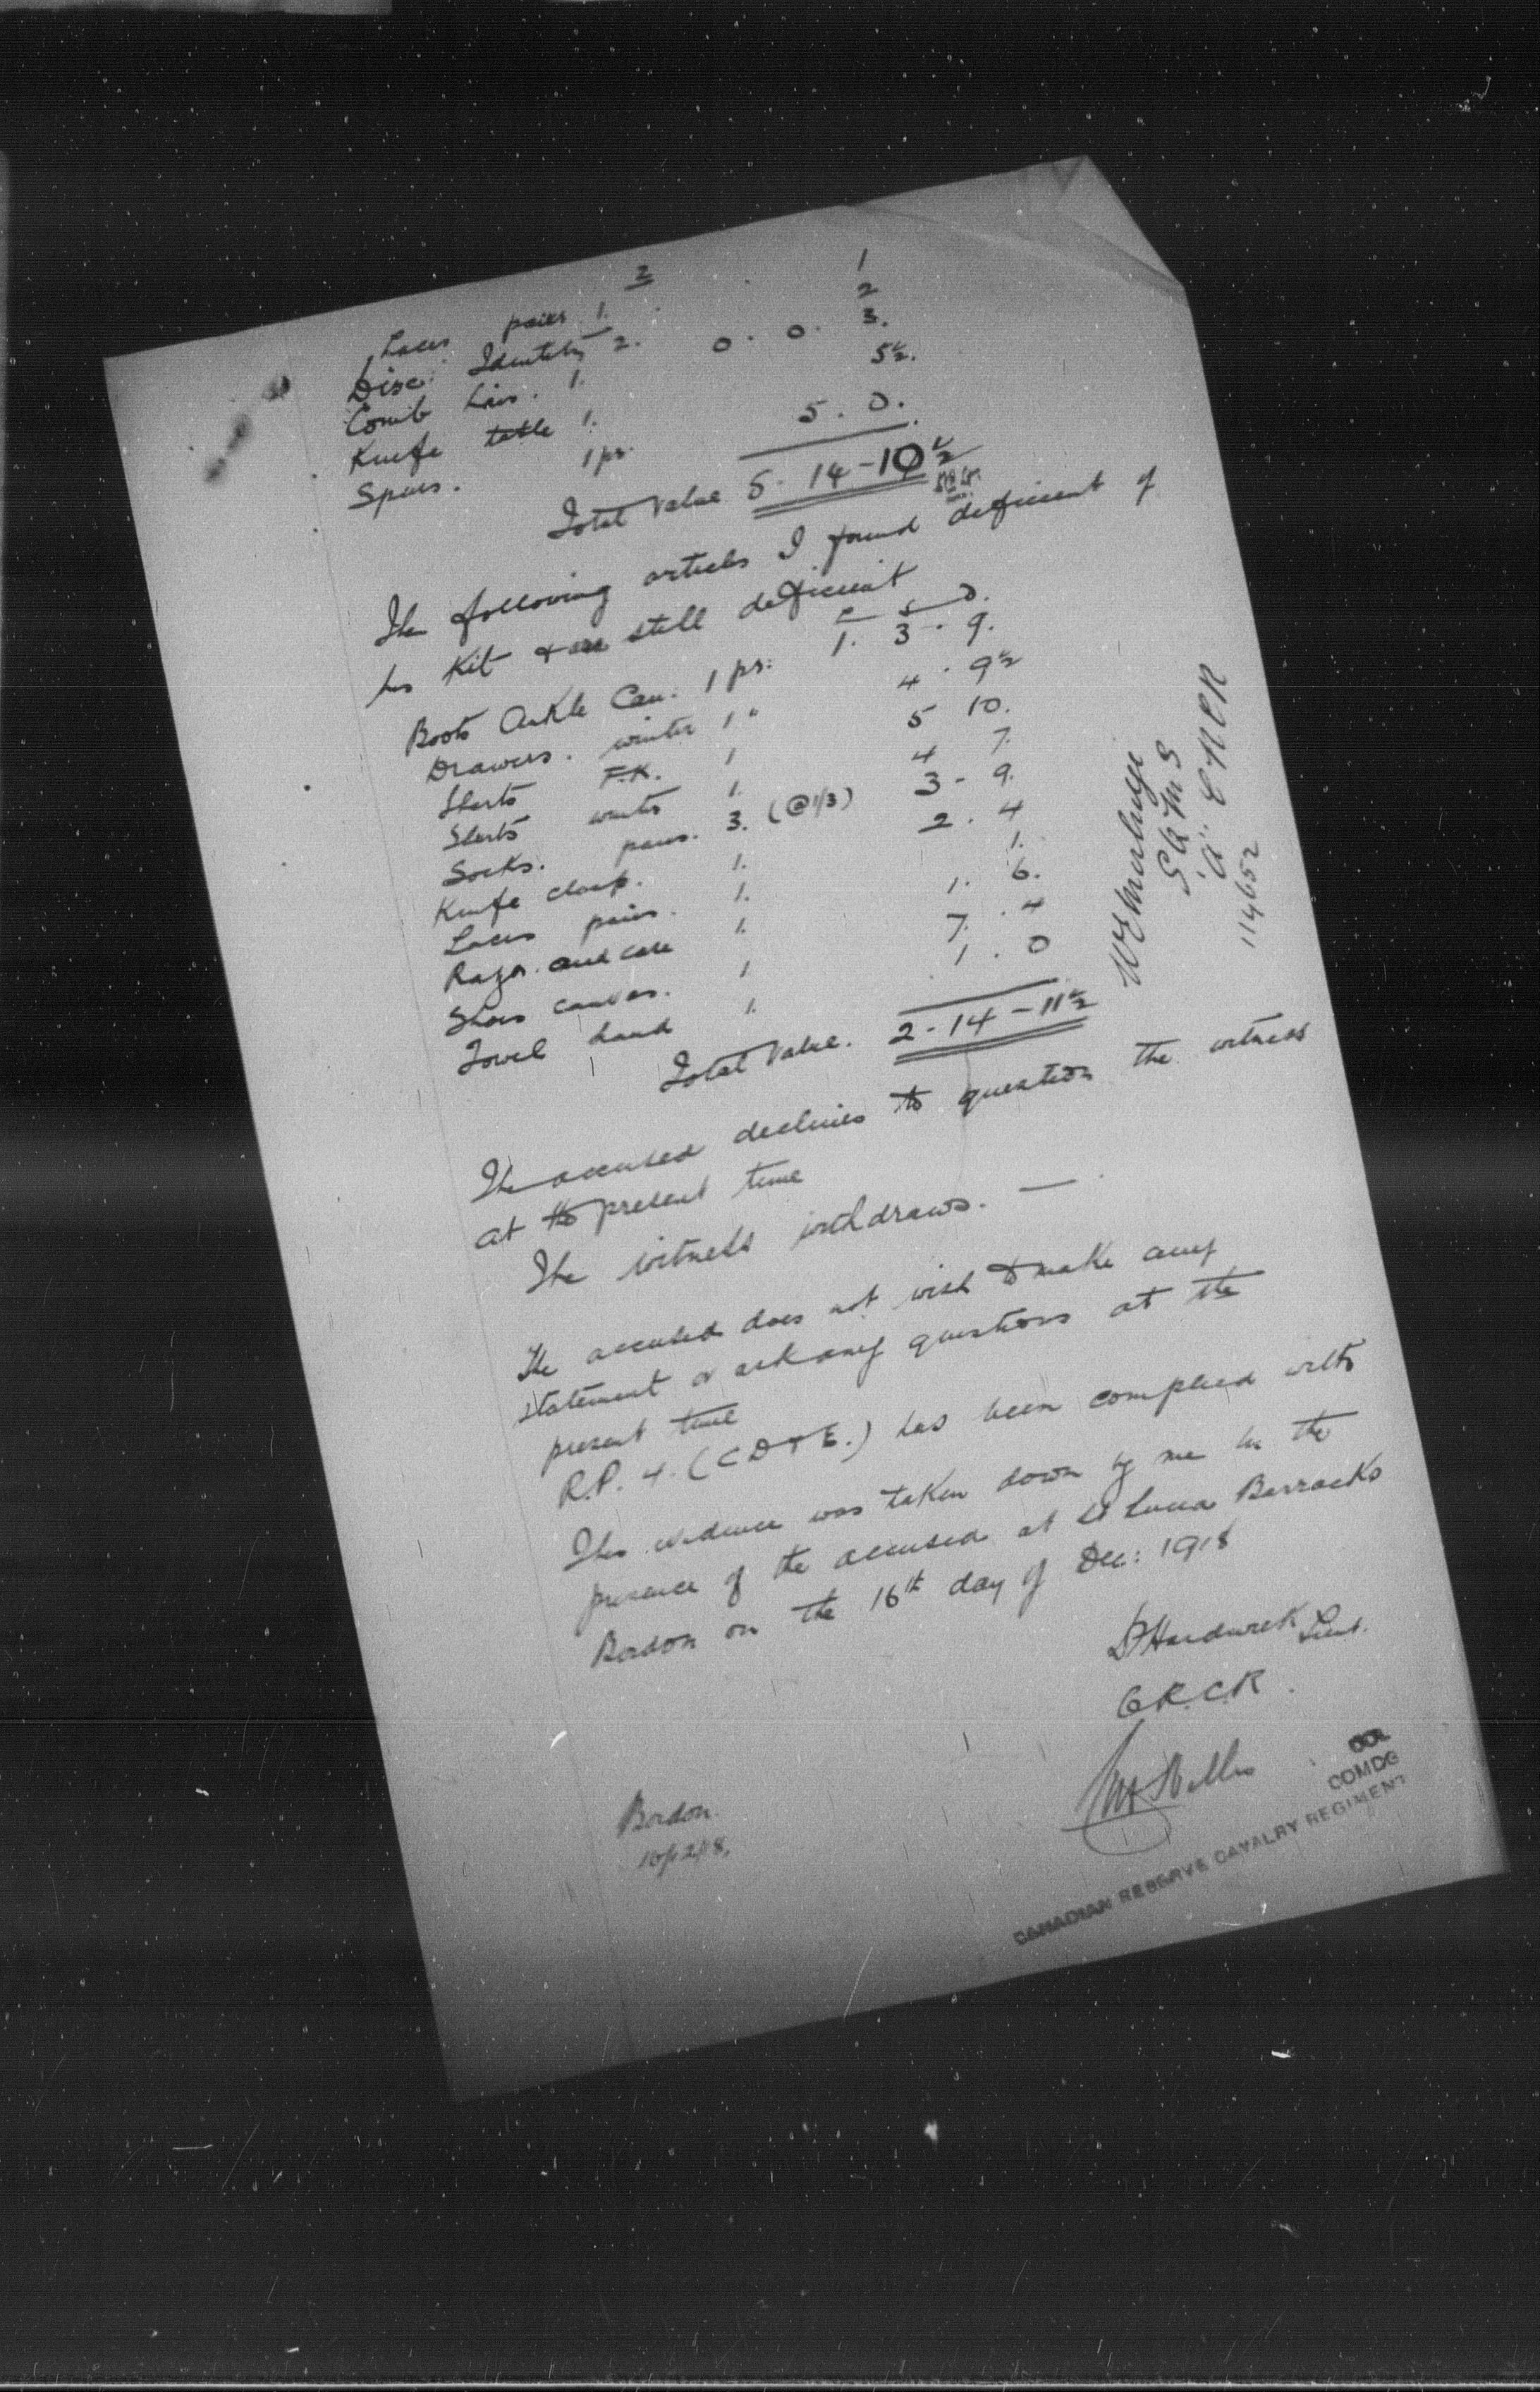 2
Laces pairs 1. 1
Disc Identity 2. 0. 0. 2
Comb hair. 1. 3.
Knife table 1. 5½.
Spurs. 1 pr. 5. 0.
Total Value 5-14-10½
The following articles I found deficient of
his Kit & are still deficient
£ S D.
Boots Ankle Can. 1 pr: 1. 3. 9.
Drawers. winter 1 " 4. 9½
Shirts F.K. 1 5 10.
Shirts winter 1. 4 7.
Socks. pairs. 3. (@1/3) 3 - 9.
Knife clasp. 1. 2. 4
Laces pairs. 1. 1.
Razor and case 1. 1. 6.
Shoes canvas. 1 7. 4
Towel hand 1. 1. 0
Total Value. 2-14-11½
S Q M S
"A" C M C R
114652
The accused declines to question the witness
at the present time
The witness withdraws. —
The accused does not wish to make any
statement or ask any questions at the
present time
R.P. 4. (C D & E.) has been complied with
This evidence was taken down by me in the
presence of the accused at St Lucia Barracks
Bordon on the 16th day of Dec: 1918
Hardwick Lieut.
C.R.C.R.
COL
COMDG
CANADIAN RESERVE CAVALRY REGIMENT
Bordon.
16/12/18.